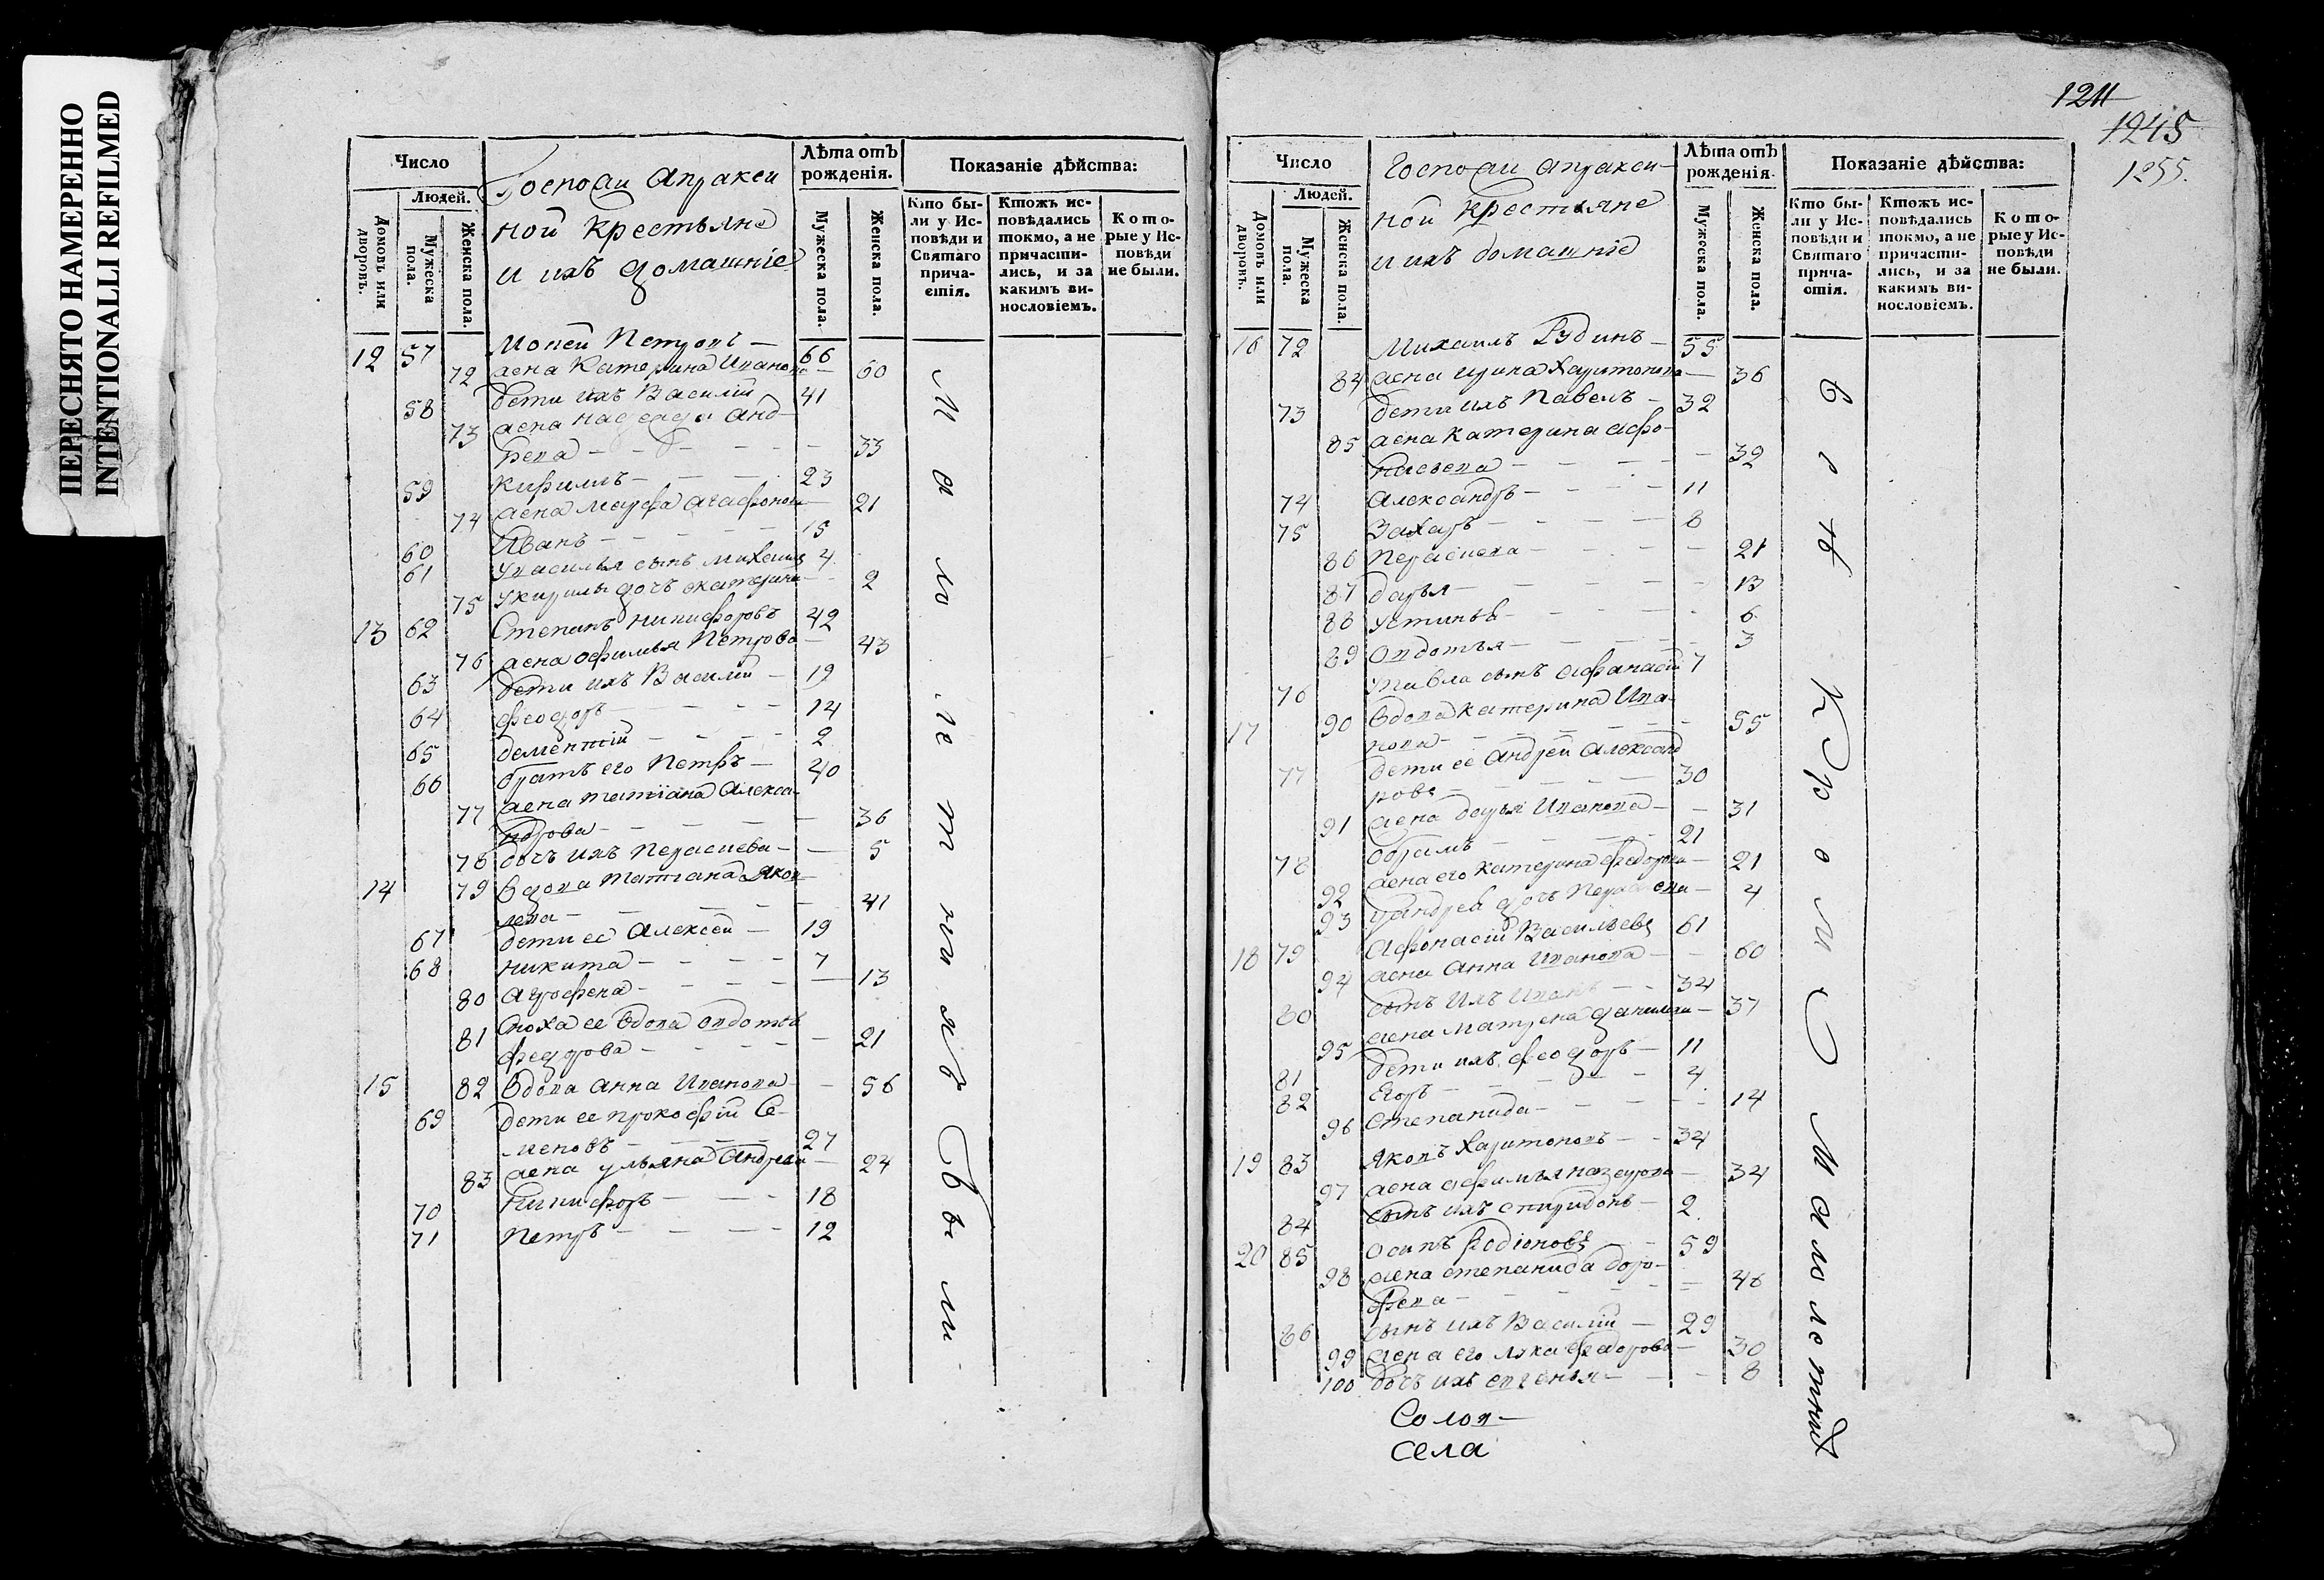 ПЕРЕСНЯТО НАМЕРЕННО
INTENTIONALLI REFILMED
Число
Людей.
Домовъ или дворовъ.
Мужеска пола.
Женска пола.
Госпожи Апракси
ной крестьяне
и ихъ домашніе
Лѣта отъ рожденія.
Мужеска пола.
Женска пола.
Показаніе дѣйства:
Кто бы-
ли у Ис-
повѣди и
Святаго
прича-
стія.
Ктожъ ис-
повѣдались
токмо, а не
причасти-
лись, и за
какимъ ви-
нословіемъ.
Кото-
рые у Ис-
повѣди
не были.
12 57 Петровъ — 66
72 жена Катерина Иванова — 60
58 дети ихъ Василій 41
73 жена Анд-
реева — 33
59 Кирилъ — 23
74 жена Марфа Агафонова — 21
60 Иванъ — 15
61 Увасилья сынъ Михаилъ 4
75 Укирилы дочь екатерина — 2
13 62 Степанъ Никифоровъ 42
76 жена Офимья Петрова — 43
63 дети ихъ Василій — 19
64 Феодоръ — 14
65 Дементій — 2
66 братъ его Петръ — 40
77 жена татіана Алекса-
ндрова — 36
78 дочь ихъ Парасцева — 5
14 79 вдова Татіана Яков-
лева — 41
67 дети ее Алексей — 19
68 Никита — 7
80 Агрофена — 13
81 Сноха ее вдова Овдотья
Федорова — 21
15 82 вдова Анна Иванова — 56
69 дети ее Прокофій Се-
меновъ — 27
83 жена ульяна Андреева — 24
70 Никифоръ — 18
71 Петръ — 12
Малолетнихъ Свеми
1211
1245
1255.
Число
Людей.
Домовъ или дворовъ.
Мужеска пола.
Женска пола.
Госпожи Апракси-
ной крестьяне
и ихъ домашніе
Лѣта отъ рожденія.
Мужеска пола.
Женска пола.
Показаніе дѣйства:
Кто бы-
ли у Ис-
повѣди и
Святаго
прича-
стія.
Ктожъ ис-
повѣдались
токмо, а не
причасти-
лись, и за
какимъ ви-
нословіемъ.
Кото-
рые у Ис-
повѣди
не были.
16 72 Михаилъ — 55
84 жена ирина Харитонова — 36
73 дети ихъ Павелъ — 32
85 жена Катерина Афо-
насьева — 32
74 Александръ — 11
75 Захаръ — 8
86 Парасцева — 21
87 дарья — 13
88 Устинья — 6
89 Овдотья — 3
76 Упавла сынъ Афанасій 7
17 90 вдова катерина Ива-
нова — 55
77 дети ее Андрей Александ
ровъ — 30
91 жена дарья Иванова — 31
78 Обрамъ — 21
92 жена его катерина Федорова — 21
93 Уандрея дочь Парасцева — 4
18 79 Афонасій Васильевъ 61
94 жена Анна Иванова — 60
80 сынъ ихъ Иванъ — 34
95 жена Матрена данилова — 37
81 дети ихъ Феодоръ — 11
82 Егоръ — 4
96 Степанида — 14
19 83 Яковъ Харитоновъ — 34
97 жена Афимья назарова — 34
84 сынъ ихъ спиридонъ — 2
20 85 Осипъ Родіоновъ — 59
98 жена степанида доро-
феева — 46
86 сынъ ихъ Василій — 29
99 жена его Федорова — 30
100 дочь ихъ евгенья — 8
Все кроме Малолетнихъ
села